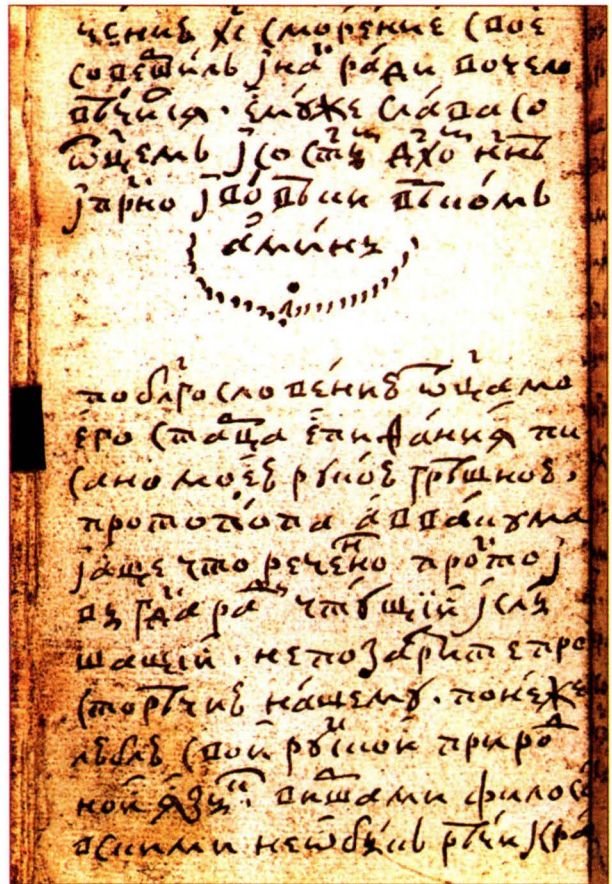 чениѣ хс сморениѣ свое
совешилъ ј на ради вочело
вѣчийся. ему же слава со
ѿцемъ ј со сты дхо ннѣ
ј прно ј во вѣки вѣкомъ
аминь
по блгословениѣ ѿца мо
его стаца епифания пи
сано моеѣ рукоѣ грѣшноѣ.
протопопа аввакума
ј аще что речено прото ј
въ гда ра чтущий ј слы
шащий. не позарите про
сторѣчиѣ нашему. понеже
лѣблѣ свой руской приро
ной языкъ. виршами филосо
вскими не ѡбыкъ рѣчи ј кра